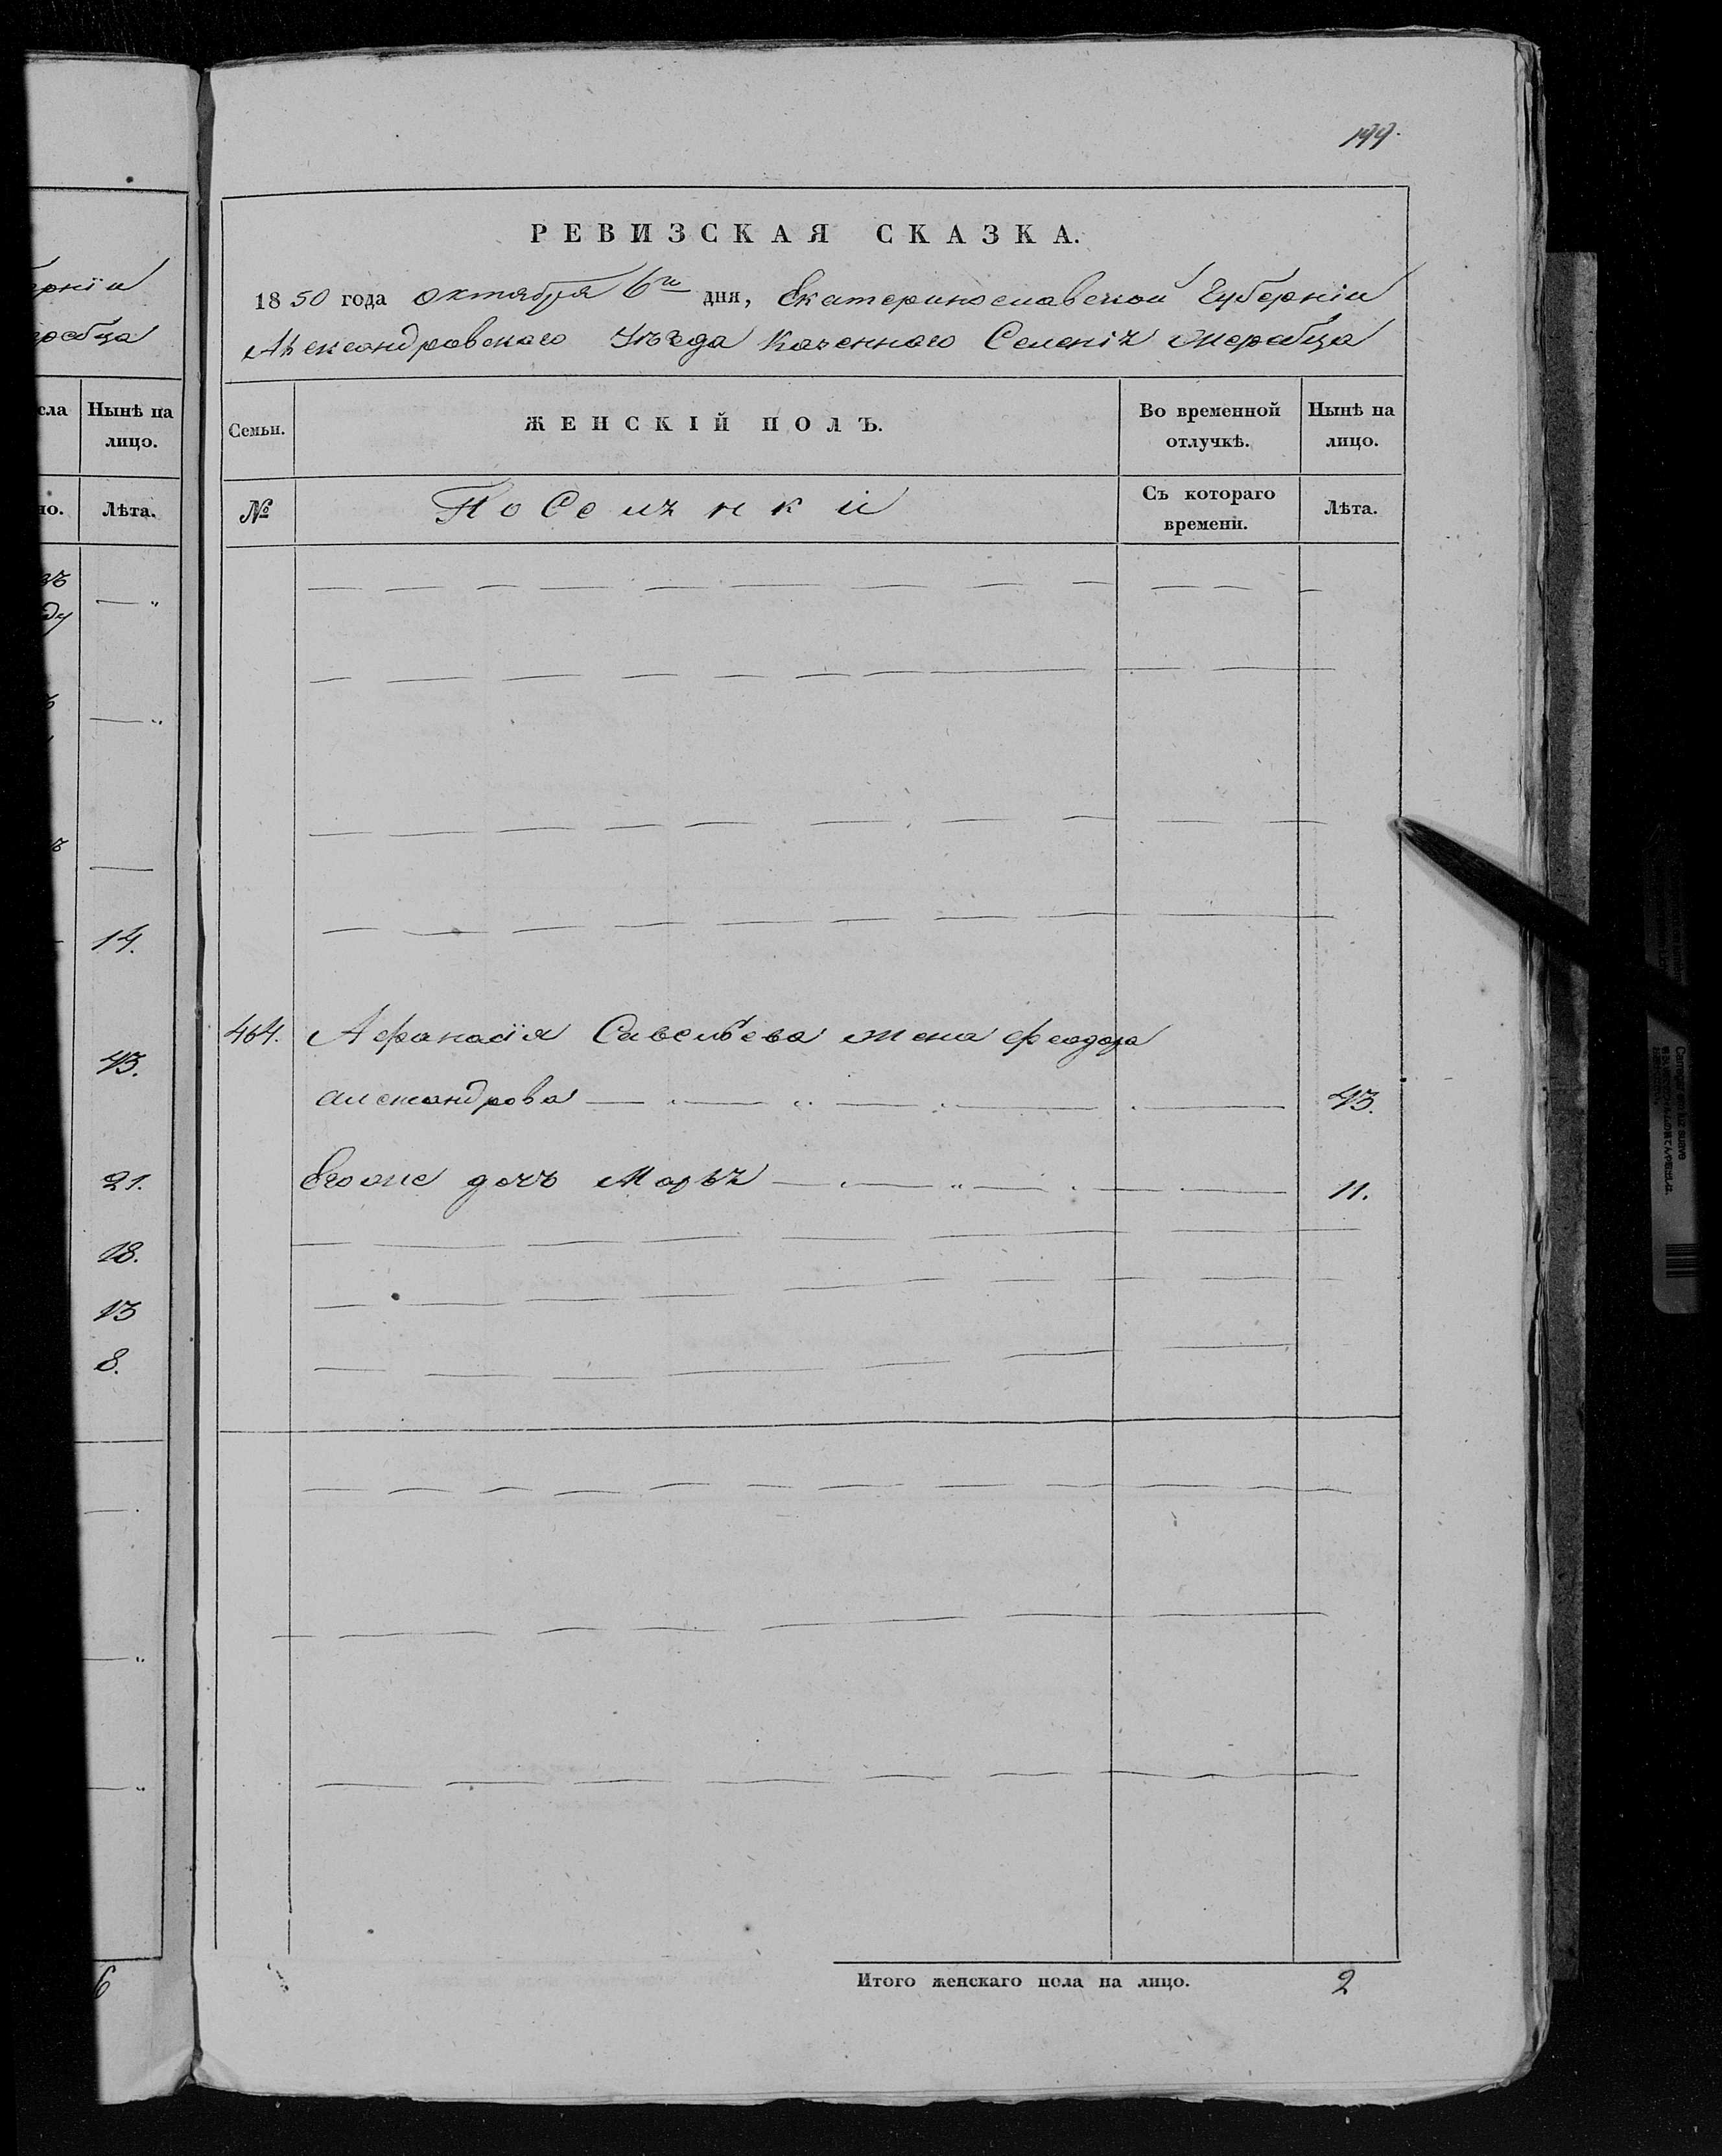 199.
РЕВИЗСКАЯ СКАЗКА.
1850 года октября 6го дня, Екатеринославской Губерніи
Александровскаго Уѣзда Казеннаго Селенія Жеребца
Семьи.
ЖЕНСКІЙ ПОЛЪ.
Во временной отлучкѣ.
Нынѣ на лицо.
№
Поселянки
Съ котораго времени.
Лѣта.
464. Афанасія Савельева жена Феодора
Александрова 43.
Егоже дочь Марья 11.
Итого женскаго пола на лицо. 2
ерніи
ребца
сла
Нынѣ на лицо.
но.
Лѣта.
14.
43.
21.
18.
13
8.
6